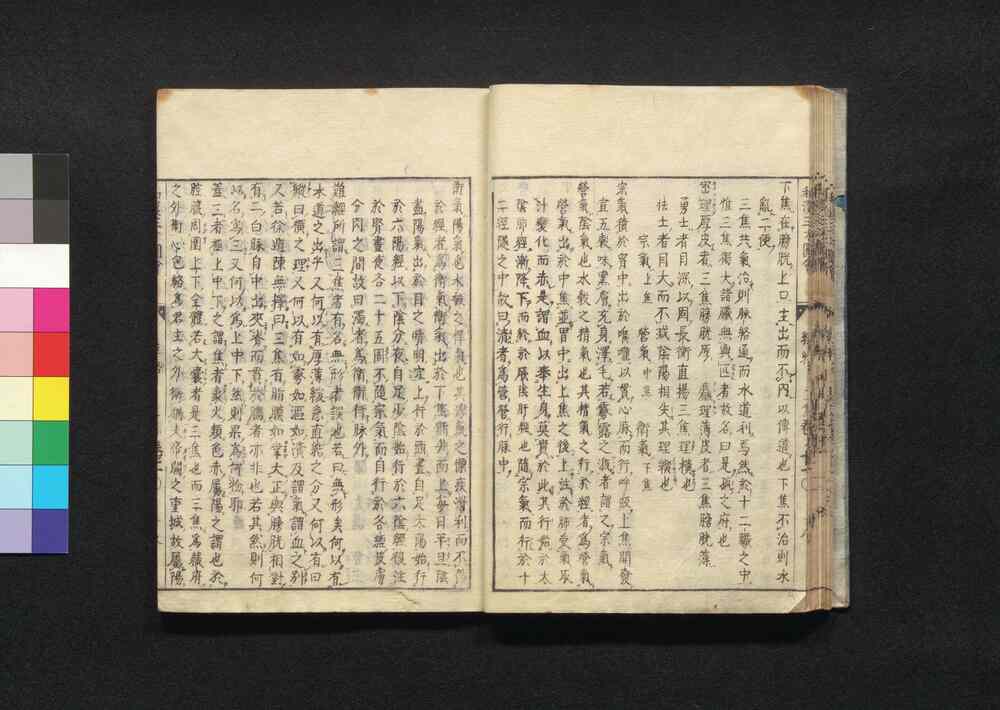 下焦在膀胱上口主出而不內以傳道也下焦不治則水
亂二便
三焦共氣治則脉絡通而水道利焉然於十二臟之中
惟三焦獨大諸臟無與匹者故名曰是孤之府也
密理厚皮者三焦膀胱厚 麤理薄皮者三焦膀胱薄
勇士者目深以固長衡直揚三焦理橫也
怯士者目大而不減陰陽相失其理縱也
宗氣上焦 營氣中焦 衛氣下焦
宗氣積於胷中出於喉嚨以貫心脉而行呼吸上焦開發
宣五穀味熏膚充身澤毛若霧露之漑者謂之宗氣
營氣陰氣也水穀之精氣也其精氣之行於經者為營氣
營氣出於中焦並胃中出上焦之後上注於肺受氣
汁變化而赤是謂血以奉生身莫貴於此其行始於太
陰肺經漸降下而於於厥陰肝經也隨宗氣而行於十
二經隧之中故曰清者為營營行脉中
衛氣陽氣也水穀之悍氣也其浮氣之慓疾滑利而不
於經者為衛氣衛氣出於下焦漸升而上每日平旦陰
盡陽氣出於目之睛明定上行於頭晝自足太陽始行
於六陽經以下陰分夜自足少陰始行於六陰經復注
於腎晝夜各二十五周不隨宗氣而自行於各經皮膚
分肉之間故曰濁者為衛衛行脉外
難經所謂三焦者有名無形者誤也若曰無形矣何以有
水道之出乎又何以有厚薄緩急直結之分又何以有曰
縱曰橫之理又何以有如霧如漚如瀆及謂氣謂血之別
又若徐遁陳無擇曰三焦有脂膜如掌大正與膀胱相對
有二白脉自中出夾脊而貫於腦者亦非也若其然則何
以名為三又何以為上中下然則果為何物耶
蓋三者極上中下之謂焦者象火類色赤屬陽之謂也於
腔腹周圍上下全體若大囊者是三焦也而三焦為藏府
之外衛心包絡為君主之外衛猶夫帝闕之重城故屬陽